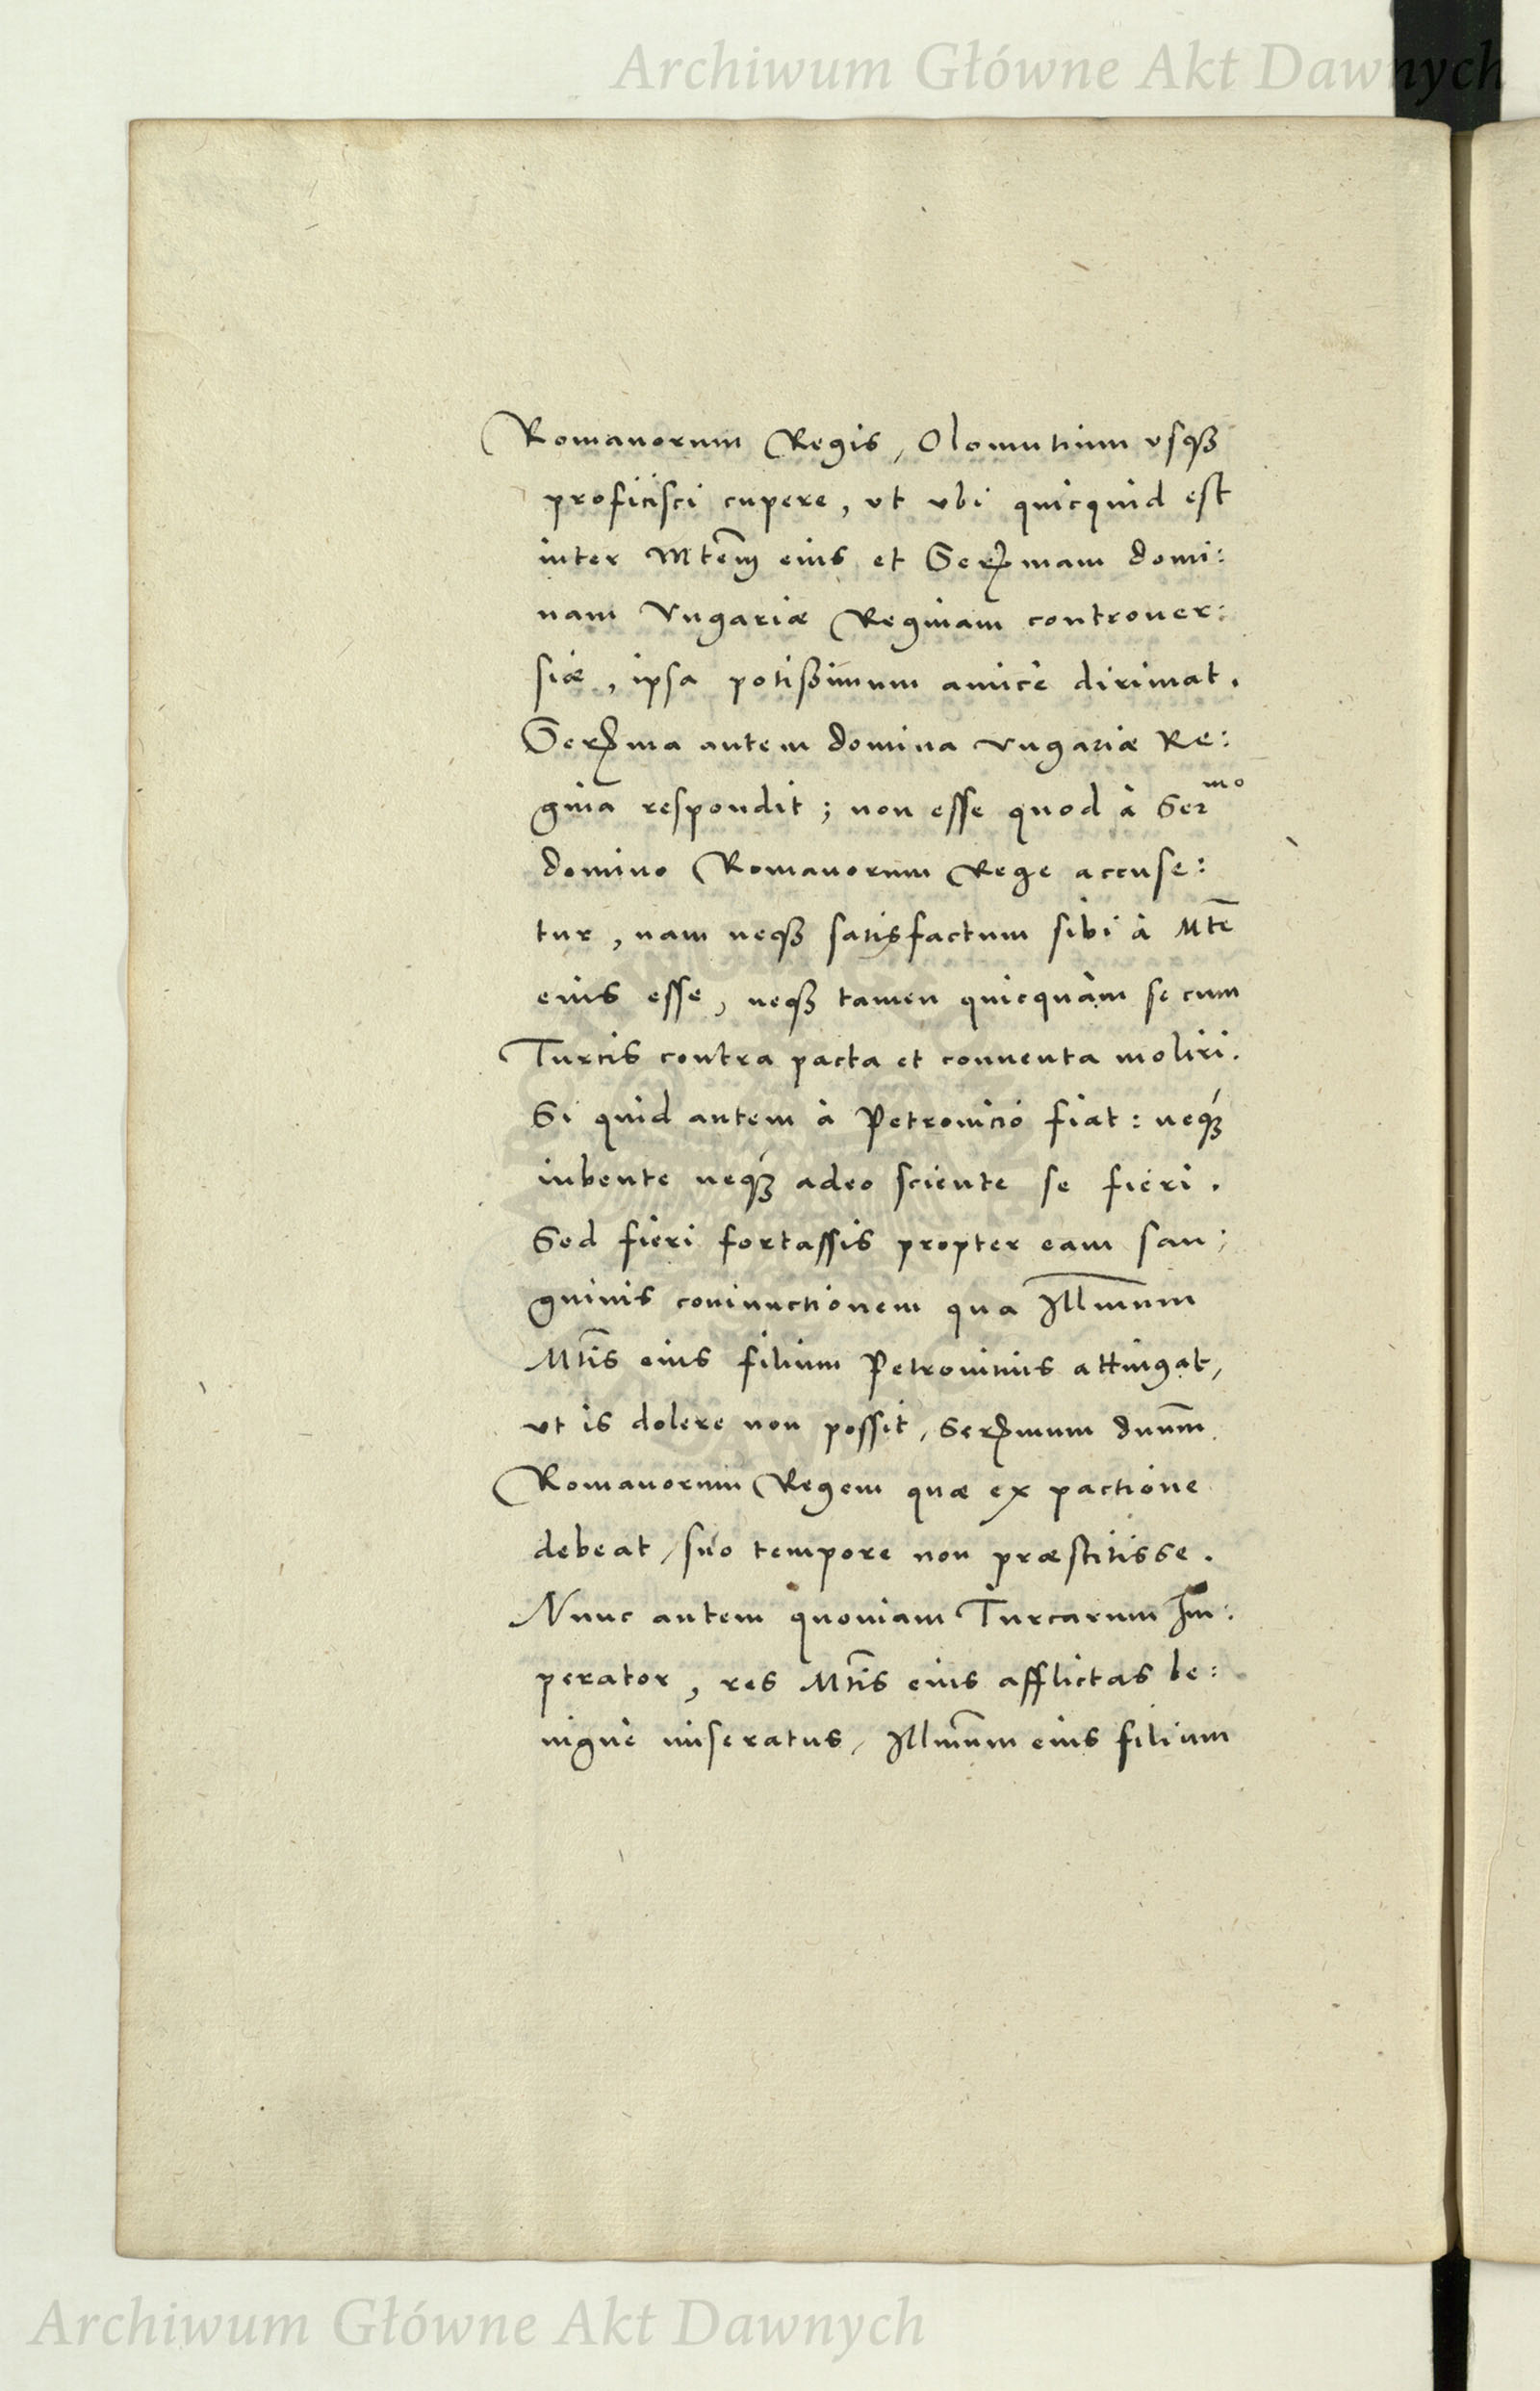 Archiwum Główne Akt Dawnych
Romanorum Regis, Olomutium vsqꝫ
proficisci cupere, vt vbi quicquid est
inter Mtem̃ eius et Serᵐmam domi:
nam Vngariæ Reginam controuer:
siæ, ipsa potißimum amicè dirimat.
Serᵐma autem domina vngariæ Re:
gina respondit; non esse quod à Serᵐᵒ
domino Romanorum Rege accuse:
tur, nam neqꝫ satisfactum sibi à Mtẽ
eius esse, neqꝫ tamen quicquàm se cum
Turcis contra pacta et conuenta moliri.
Si quid autem à Petrouicio fiat: neqꝫ
iubente neqꝫ adeo sciente se fieri.
Sed fieri fortassis propter eam san:
guinis coniunctionem qua Illm̃um
Mtĩs eius filium Petrouitius attingat,
vt is dolere non possit, Serᵐmum dnũm
Romanorum Regem quæ ex pactione
debeat, suo tempore non præstitisse.
Nunc autem quoniam Turcarum Im:
perator, res Mtĩs eius afflictas be:
nignè miseratus, Illmũm eius filium
Archiwum Główne Akt Dawnych